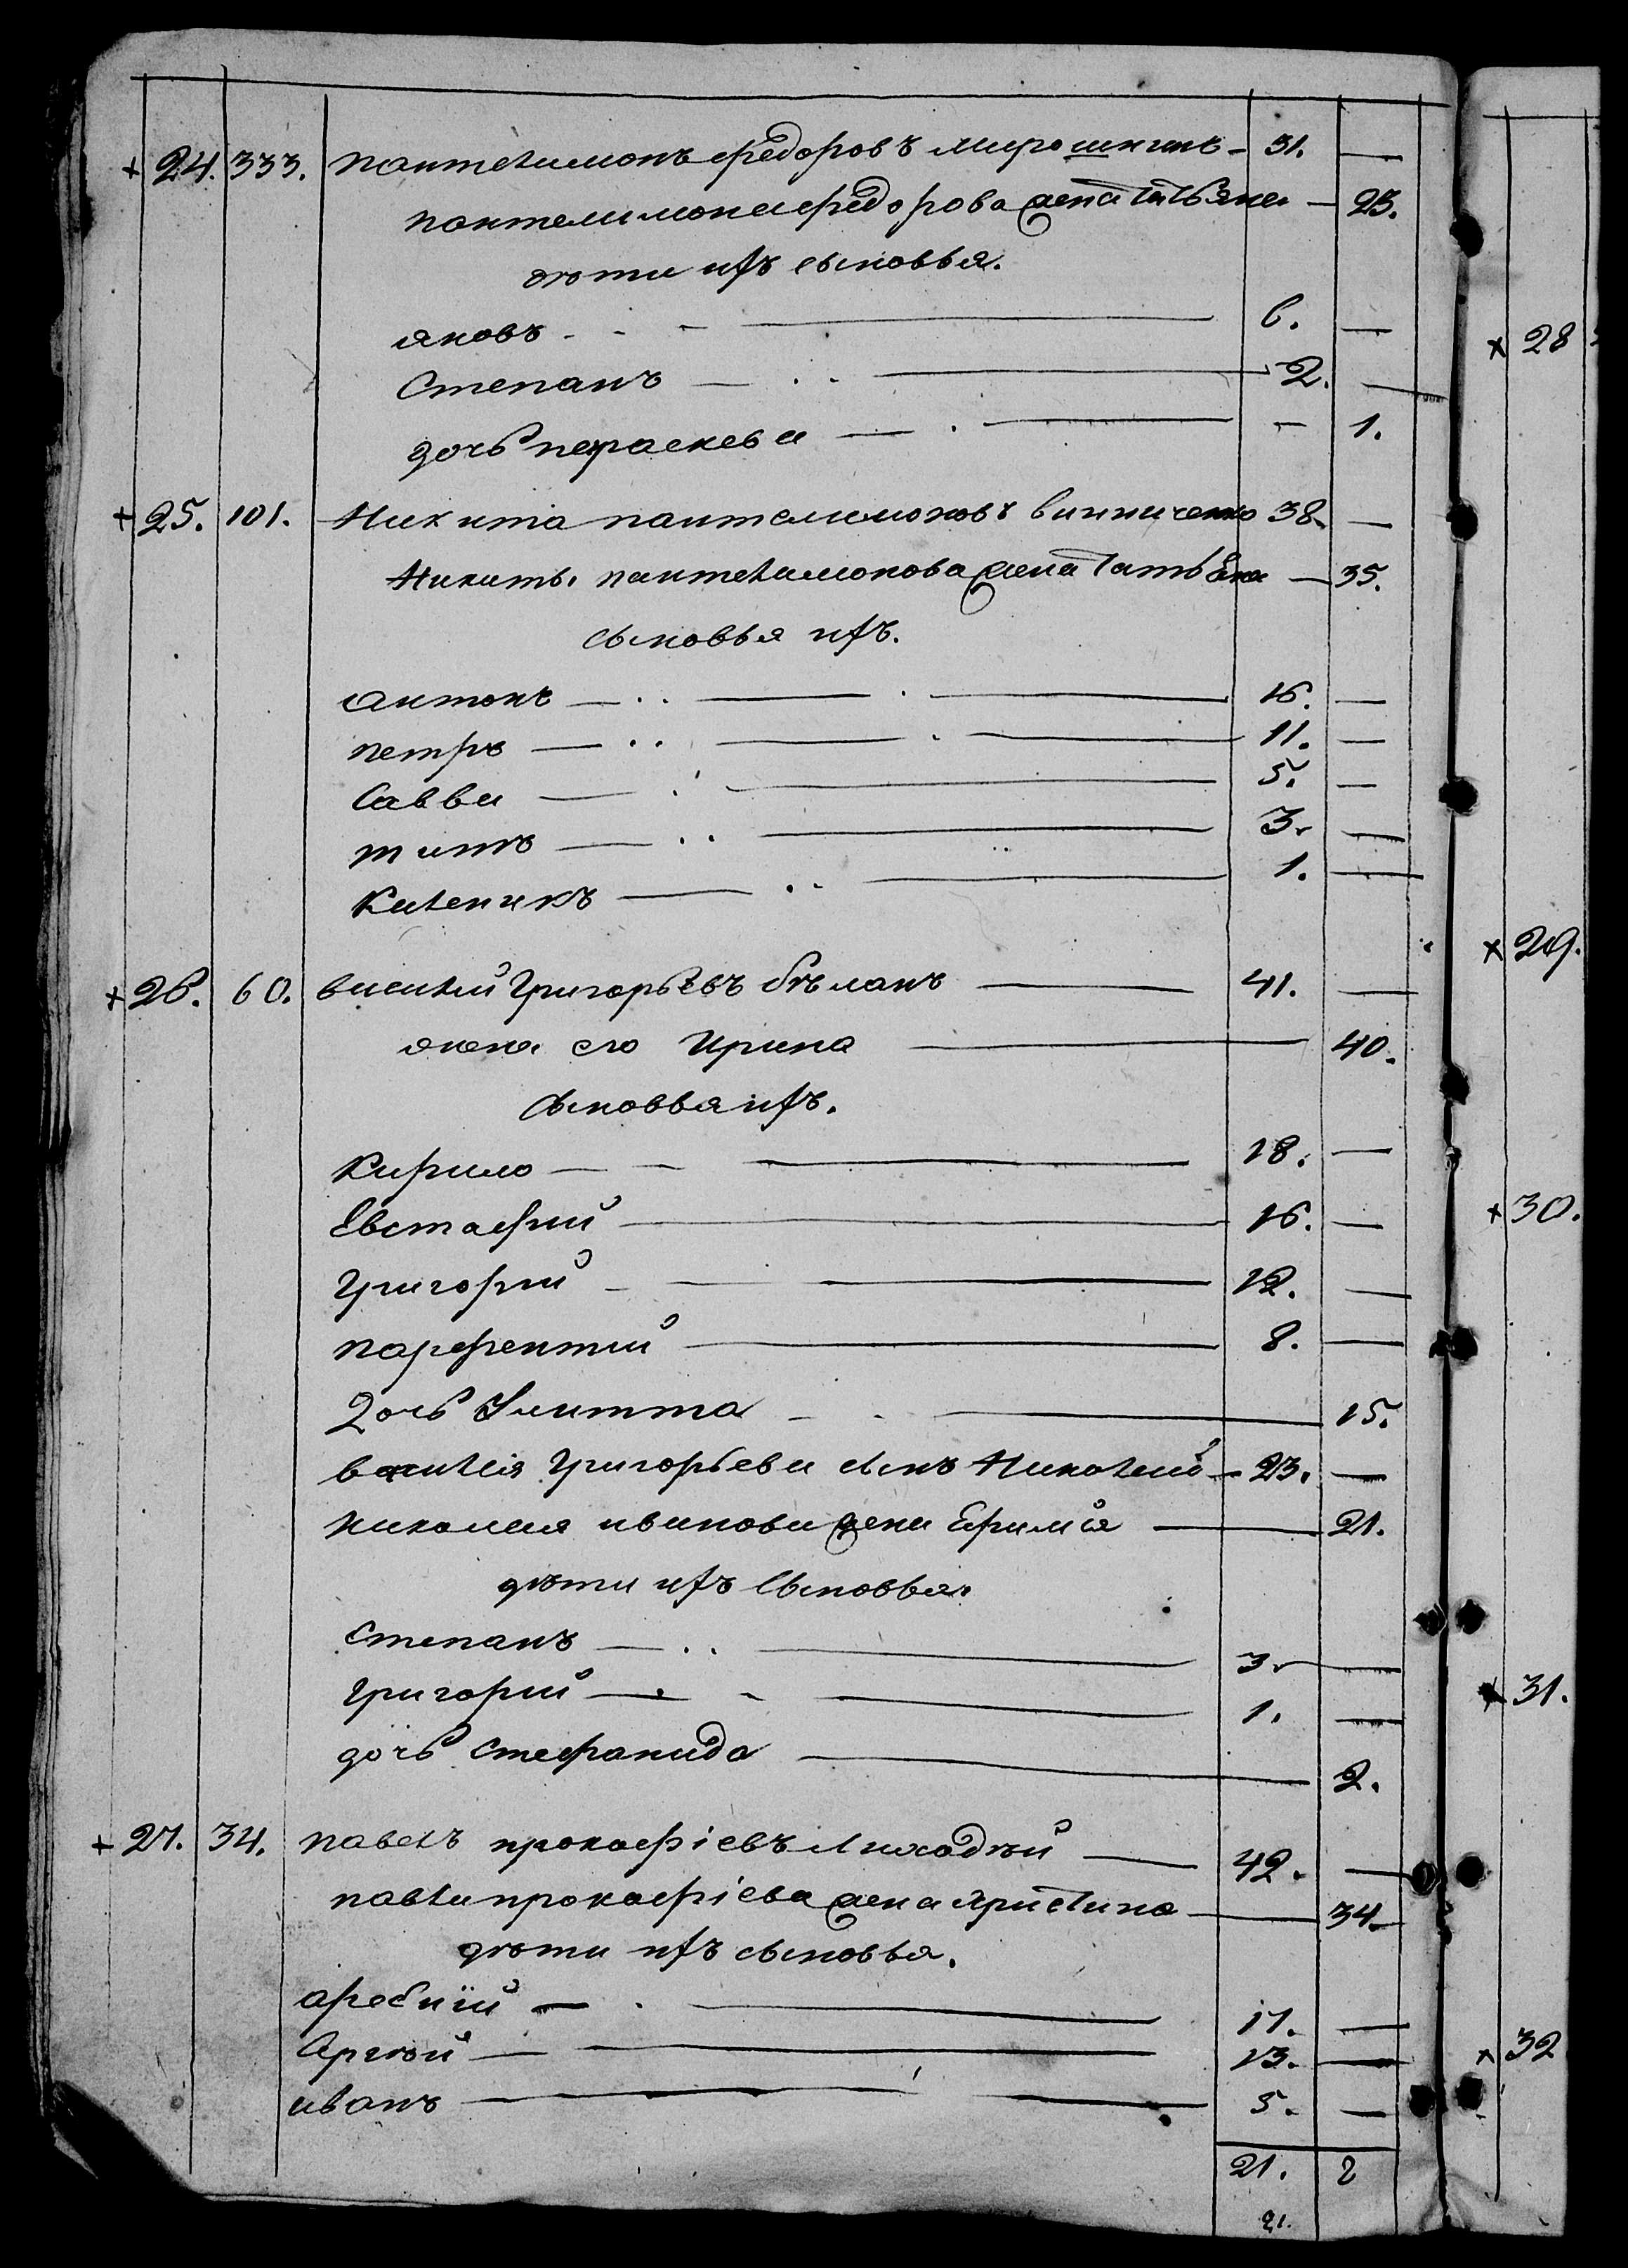 + 24. 333. Пантелимонъ Федоровъ Мирошникъ — 31. —
Пантелимона Федорова жена Татьяна — 23.
дѣти ихъ сыновья.
Яковъ — 6. —
Степанъ — 2. —
дочь Параскева — 1.
+ 25. 101. Никита Пантелимоновъ Винниченко 38. —
Никиты Пантелимонова жена Татьяна — 35.
Сыновья ихъ.
Антонъ — 16. —
Петръ — 11. —
Савва — 5. —
Титъ — 3. —
Каленикъ — 1. —
+ 26. 60. Василій Григорьевъ Бѣланъ — 41. —
жена его Ирина — 40.
Сыновья ихъ.
Кирило — 18. —
Евстафій — 16. —
Григорій — 12. —
Парфентій — 8. —
Дочь Улитта — 15.
Василія Григорьева сынъ Николай — 23. —
Николая Иванова жена Ефимія — 21.
дѣти ихъ Сыновья.
Степанъ — 3. —
Григорій — 1. —
дочь Стефанида — 2.
+ 27. 34. Павелъ Прокофіевъ Лиходѣй — 42. —
Павла Прокофіева жена Христина — 34.
дѣти ихъ сыновья.
17. —
13. —
Иванъ — 5. —
21. 8
21.
× 28
× 29.
× 30.
× 31.
× 32